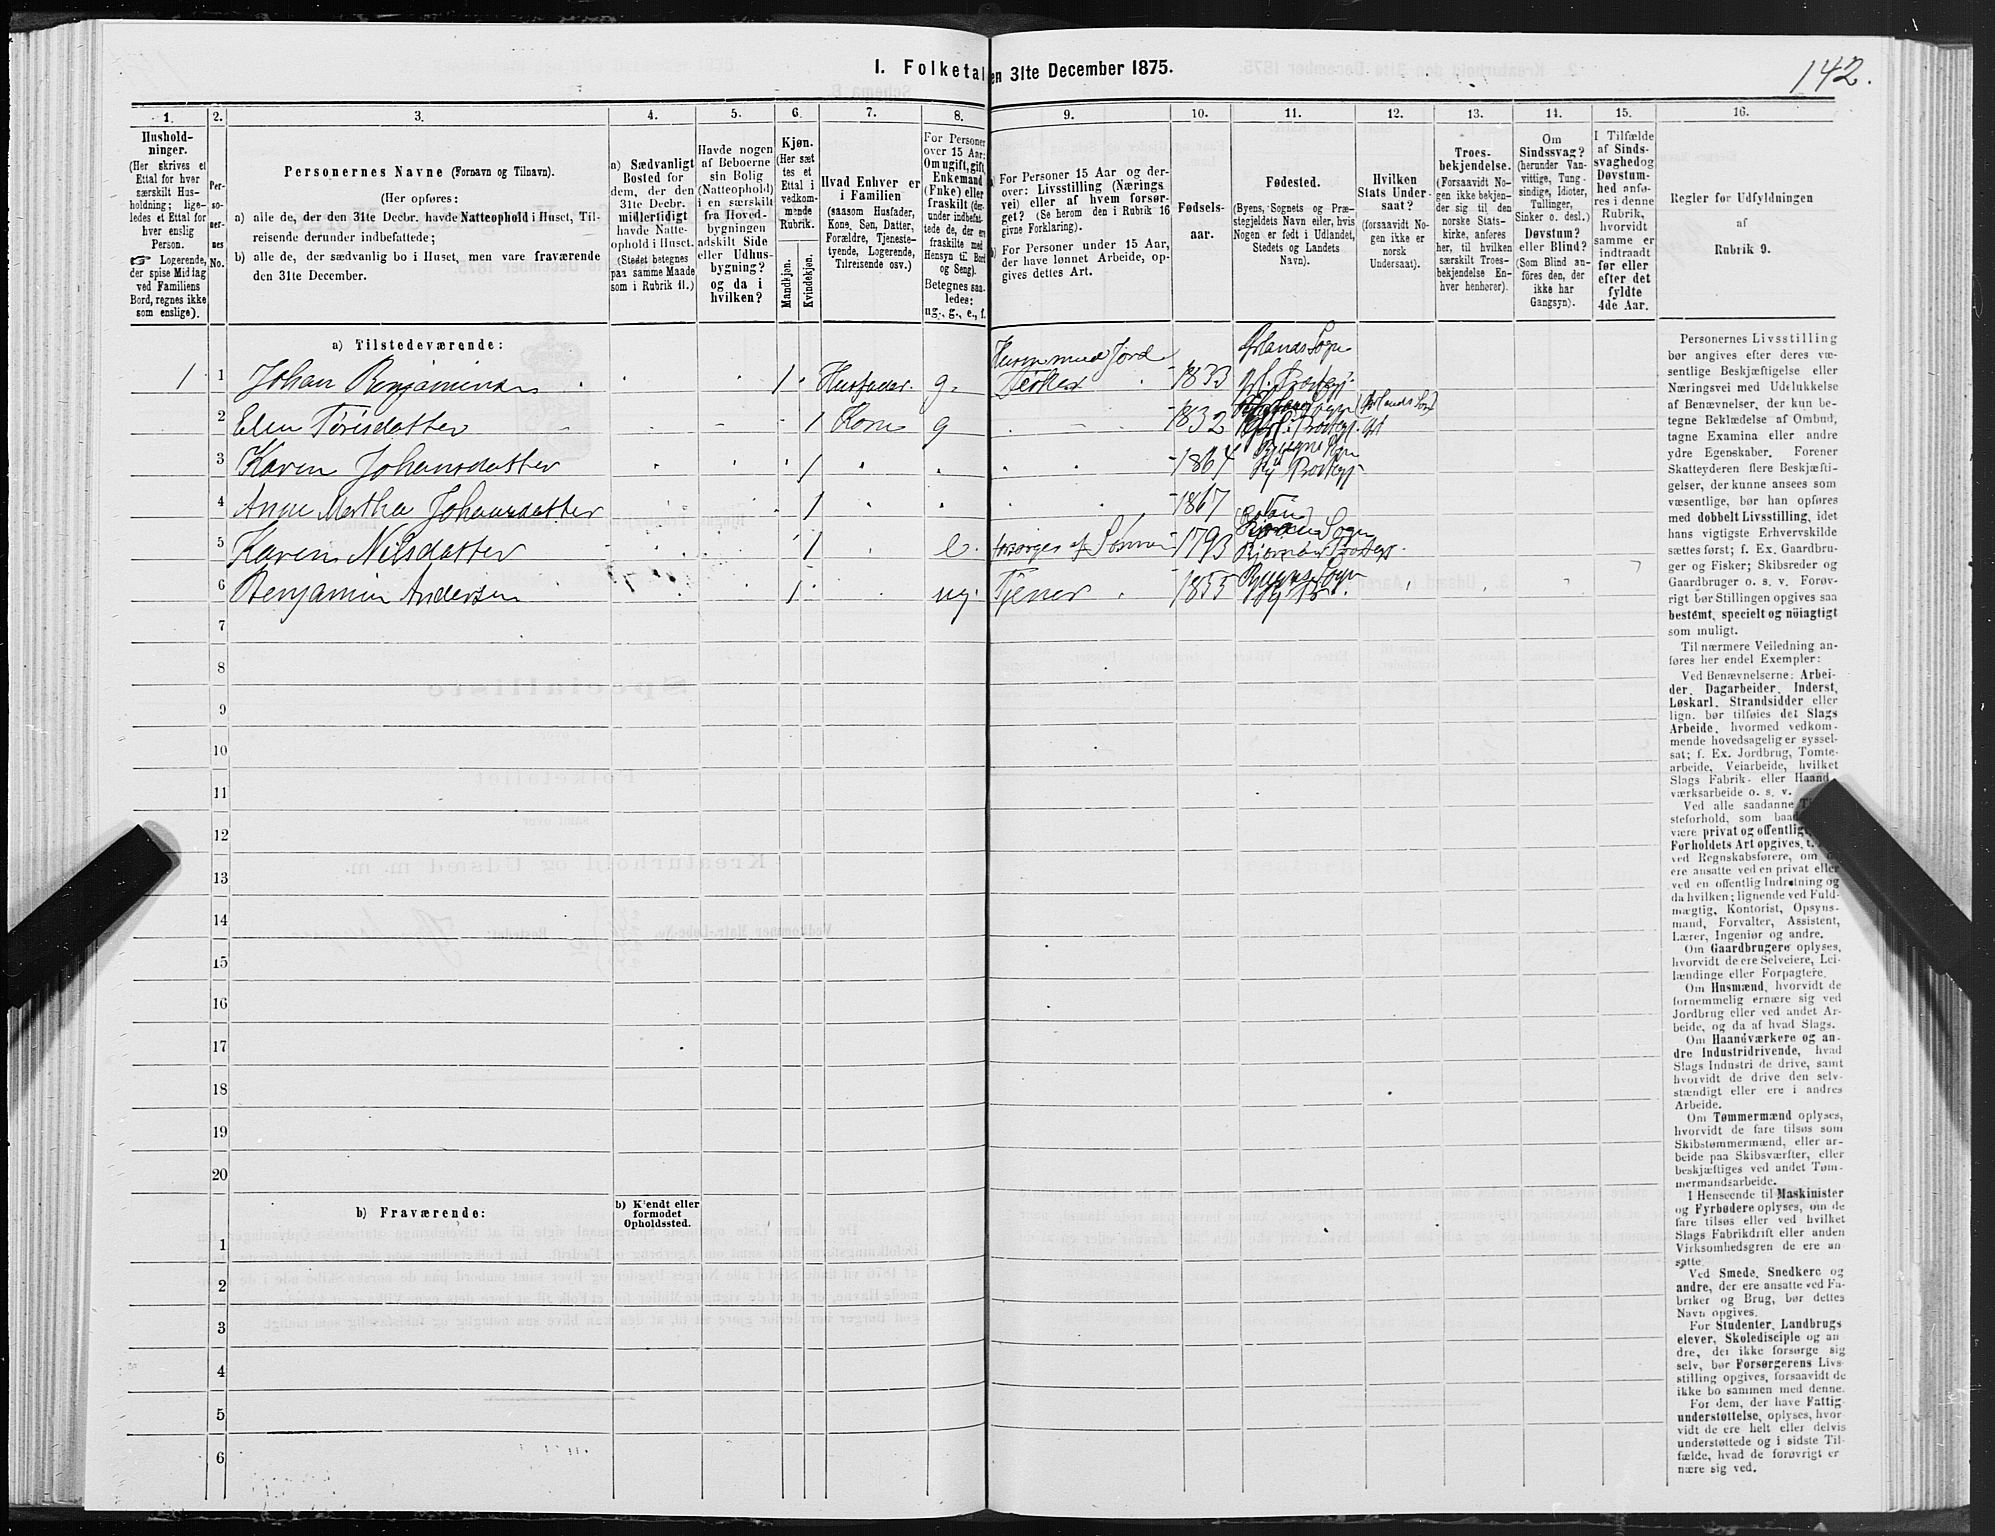 142.
I. Folketal den 31te December 1875.
1. 2. 3. 4. 5. 6. 7. 8. 9. 10. 11. 12. 13. 14. 15. 16.
Hushold-
ninger.
(Her skrives et
Ettal for hver
særskilt Hus-
holdning; lige-
ledes et Ettal for
hver enslig
Person.
☞ Logerende,
der spise Middag
ved Familiens
Bord, regnes ikke
som enslige).
Per-
soner-
nes
No.
Personernes Navne (Fornavn og Tilnavn).
(Her opføres:
a) alle de, der den 31te Decbr. havde Natteophold i Huset, Til-
reisende derunder indbefattede;
b) alle de, der sædvanlig bo i Huset, men vare fraværende
den 31te December.
a) Sædvanligt
Bosted for
dem, der den
31te Decbr.
midlertidigt
havde Natte-
ophold i Huset.
(Stedet betegnes
paa samme Maade
som i Rubrik 11.)
Havde nogen
af Beboerne
sin Bolig
(Natteophold)
i en særskilt
fra Hoved-
bygningen
adskilt Side
eller Udhus-
bygning?
og da i
hvilken?
Kjøn.
(Her sæt
tes et
Ettal i
vedkom-
mende
Rubrik.
Mandkjøn.
Kvindekjøn.
Hvad Enhver er
i Familien
(saasom Husfader,
Kone, Søn, Datter,
Forældre, Tjeneste-
tyende, Logerende,
Tilreisende osv.)
For Personer
over 15 Aar:
Om ugift, gift,
Enkemand
(Enke) eller
fraskilt (der-
under indbefat-
tede de, der ere
fraskilte med
Hensyn til Bord
og Seng).
Betegnes saa-
ledes:
ug., g., e., f.
a) For Personer 15 Aar og der-
over: Livsstilling (Nærings
vei) eller af hvem forsør-
get? (Se herom den i Rubrik 16
givne Forklaring).
b) For Personer under 15 Aar,
der have lønnet Arbeide, op-
gives dettes Art.
Fødsels-
aar.
Fødested.
(Byens, Sognets og Præ-
stegjeldets Navn eller, hvis
Nogen er født i Udlandet,
Stedets og Landets
Navn).
Hvilken
Stats Under-
saat?
(forsaavidt No-
gen ikke er
norsk
Undersaat).
Troes-
bekjendelse.
(Forsaavidt No-
gen ikke bekjen-
der sig til den
norske Stats-
kirke, anføres
her, til hvilken
særskilt Troes-
bekjendelse En-
hver henhører).
Om
Sindssvag?
(herunder Van-
vittige, Tung-
sindige, Idioter,
Tullinger,
Sinker o. desl.)
Døvstum?
eller Blind?
(Som Blind an-
föres den, der
ikke har
Gangsyn).
I Tilfælde
af Sinds-
svaghed og
Døvstum-
hed anfø-
res i denne
Rubrik,
hvorvidt
samme er
indtraadt
før eller
efter det
fyldte
4de Aar.
Regler for Udfyldningen
af
Rubrik 9.
a) Tilstedeværende:
1 1 Johan Benjaminsen 1 Husfader g. Husm med Jord 1833 Sogn
2 Elen Törisdatter 1 Kone g 1832
3 Karen Johansdatter 1 1864
4 Anne Martha Johansdatter 1 1867
5 Karen Nilsdatter 1 e. forsørges af Sønnen 1793 Sogn
6 Benjamin Andersen 1 ug. Tjener 1855 Sogn
7
8
9
10
11
12
13
14
15
16
17
18
19
20
b) Fraværende:
b) Kjendt eller
formodet
Opholdssted.
1
2
3
4
5
6
Personernes Livsstilling
bør angives efter deres væ-
sentlige Beskjæftigelse eller
Næringsvei med Udelukkelse
af Benævnelser, der kun be-
tegne Beklædelse af Ombud,
tagne Examina eller andre
ydre Egenskaber. Forener
Skatteyderen flere Beskjæfti-
gelser, der kunne ansees som
væsentlige, bør han opføres
med dobbelt Livsstilling, idet
hans vigtigste Erhvervskilde
sættes først; f. Ex. Gaardbru-
ger og Fisker; Skibsreder og
Gaardbruger o. s. v. Forøv-
rigt bør Stillingen opgives saa
bestemt, specielt og nöiagtigt
som muligt.
Til nærmere Veiledning an-
føres her endel Exempler:
Ved Benævnelserne: Arbei-
der, Dagarbeider, Inderst,
Løskarl, Strandsidder eller
lign. bør tilføies det Slags
Arbeide, hvormed vedkom-
mende hovedsagelig er syssel-
sat; f. Ex. Jordbrug, Tomte-
arbeide, Veiarbeide, hvilket
Slags Fabrik- eller Haand-
værksarbeide o. s. v.
Ved alle saadanne
steforhold, som
være privat og offentlig
Forholdets Art opgives,
ved Regnskabsførere, om
ere ansatte ved en privat eller
ved en offentlig Indretning og
da hvilken; lignende ved Fuld-
mægtig, Kontorist, Opsyns-
mand, Forvalter, Assistent,
Lærer, Ingeniør og andre.
Om Gaardbrugere oplyses,
hvorvidt de ere Selveiere, Lei-
lændinge eller Forpagtere.
Om Husmænd, hvorvidt de
fornemmelig ernære sig ved
Jordbrug eller ved andet Ar-
beide, og da af hvad Slags.
Om Haandværkere og an-
dre Industridrivende, hvad
Slags Industri de drive, samt
hvorvidt de drive den selv-
stændigt eller ere i andres
Arbeide.
Om Tømmermænd oplyses,
hvorvidt de fare tilsøs som
Skibstømmermænd, eller ar-
beide paa Skibsværfter, eller
beskjæftiges ved andet Tøm-
mermandsarbeide.
I Henseende til Maskinister
og Fyrbødere oplyses, om de
fare tilsøs eller ved hvilket
Slags Fabrikdrift eller anden
Virksomhedsgren de ere an-
satte.
Ved Smede, Snedkere og
andre, der ere ansatte ved Fa-
briker og Brug, bør dettes
Navn opgives.
For Studenter, Landbrugs
elever, Skoledisciple og an-
dre, der ikke forsørge sig
selv, bør Forsørgerens Livs-
stilling opgives, forsaavidt de
ikke bo sammen med denne.
For dem, der have Fattig-
understøttelse, oplyses, hvor-
vidt de ere helt eller delvis
understøttede og i sidste Til-
fælde, hvad de forøvrigt er
nære sig ved.